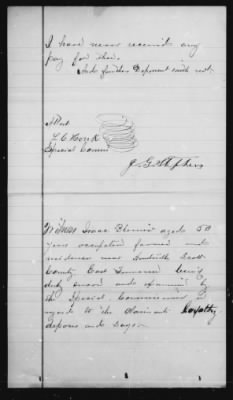 I have never received any
pay for them.
And further Deponent saith not.
Attest
L. C. Houk
Special Commr
J. G.
Witness Isaac aged 50
years occupation farmer and
residence near Huntsville Scott
County East Tennessee being
duly sworn and examined by
the Special Commissioner in
regards to the Claimants Loyalty
deposes and says